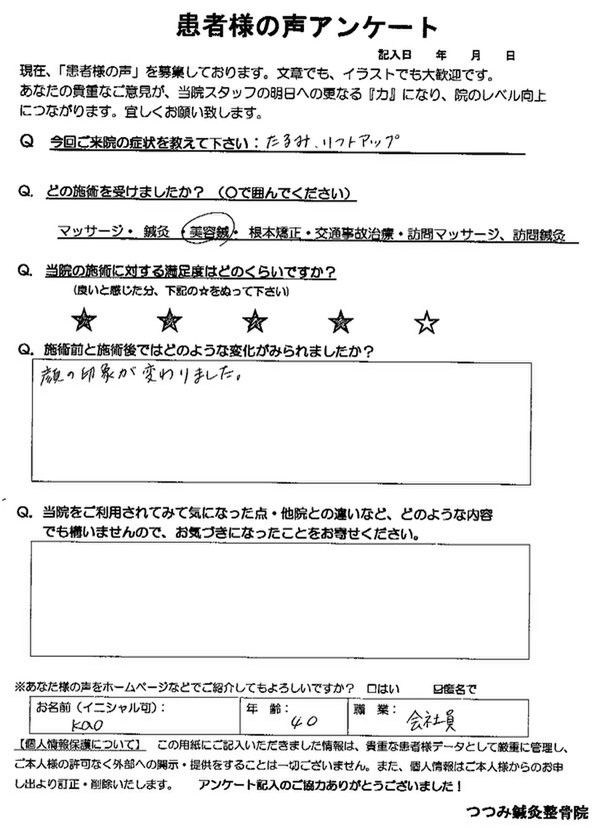 患者様の声アンケート
記入日　年　月　日
現在、「患者様の声」を募集しております。文章でも、イラストでも大歓迎です。
あなたの貴重なご意見が、当院スタッフの明日への更なる『力』になり、院のレベル向上
につながります。宜しくお願い致します。
Q　今回ご来院の症状を教えて下さい：たるみ、リフトアップ
Q. どの施術を受けましたか？（〇で囲んでください）
マッサージ・ 鍼灸 ・美容鍼・ 根本矯正・交通事故治療・訪問マッサージ、訪問鍼灸
Q. 当院の施術に対する満足度はどのくらいですか？
（良いと感じた分、下記の☆をぬって下さい）
★ ★ ★ ★ ☆
Q. 施術前と施術後ではどのような変化がみられましたか？
顔の印象が変わりました。
Q. 当院をご利用されてみて気になった点・他院との違いなど、どのような内容
でも構いませんので、お気づきになったことをお寄せください。
※あなた様の声をホームページなどでご紹介してもよろしいですか？ □はい ☑匿名で
お名前（イニシャル可）： 年　齢： 職　業：
Kao 40 会社員
【個人情報保護について】　この用紙にご記入いただきました情報は、貴重な患者様データとして厳重に管理し、
ご本人様の許可なく外部への開示・提供をすることは一切ございません。また、個人情報はご本人様からのお申
し出より訂正・削除いたします。　アンケート記入のご協力ありがとうございました！
つつみ鍼灸整骨院